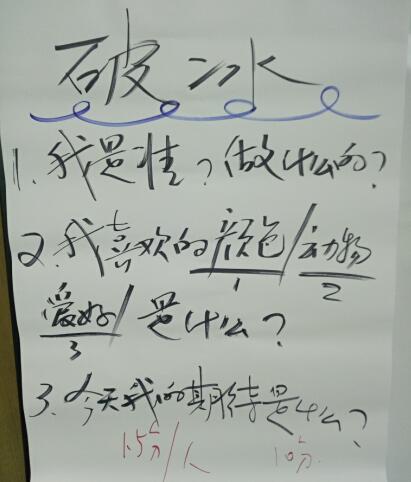 破冰
1. 我是谁？做什么的？
2. 我喜欢的颜色/动物
1 2
爱好/是什么？
3
3. 今天我的期待是什么？
1.5分/人 10分.